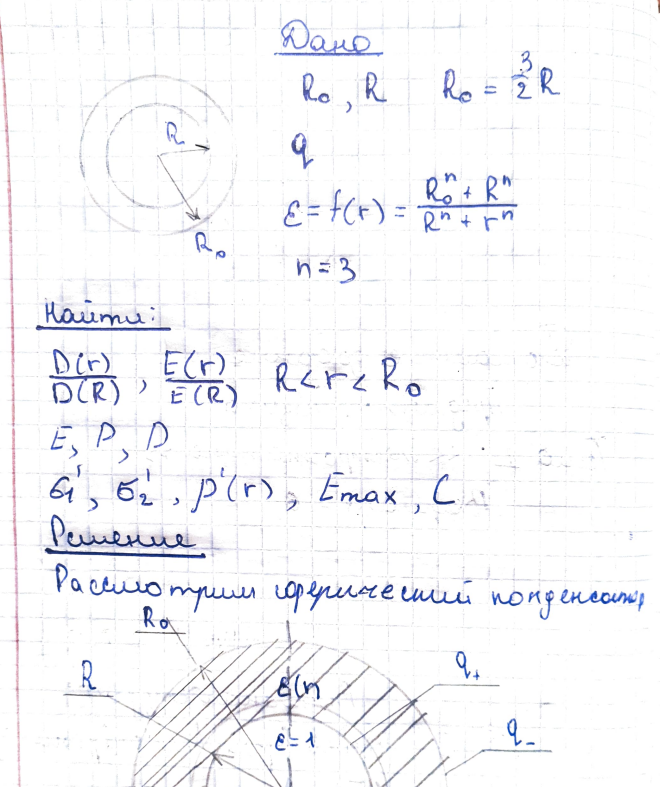 Дано
R₀, R R₀ = 3/2 R
q
ε = f(r) = (R₀ⁿ + Rⁿ)/(Rⁿ + rⁿ)
n = 3
R
R₀
Найти:
D(r)/D(R), E(r)/E(R) R < r < R₀
E, P, D
σ₁', σ₂', ρ'(r), Emax, C
Решение
Рассмотрим сферический конденсатор
R₀
R
ε(r)
q₊
ε=1
q₋